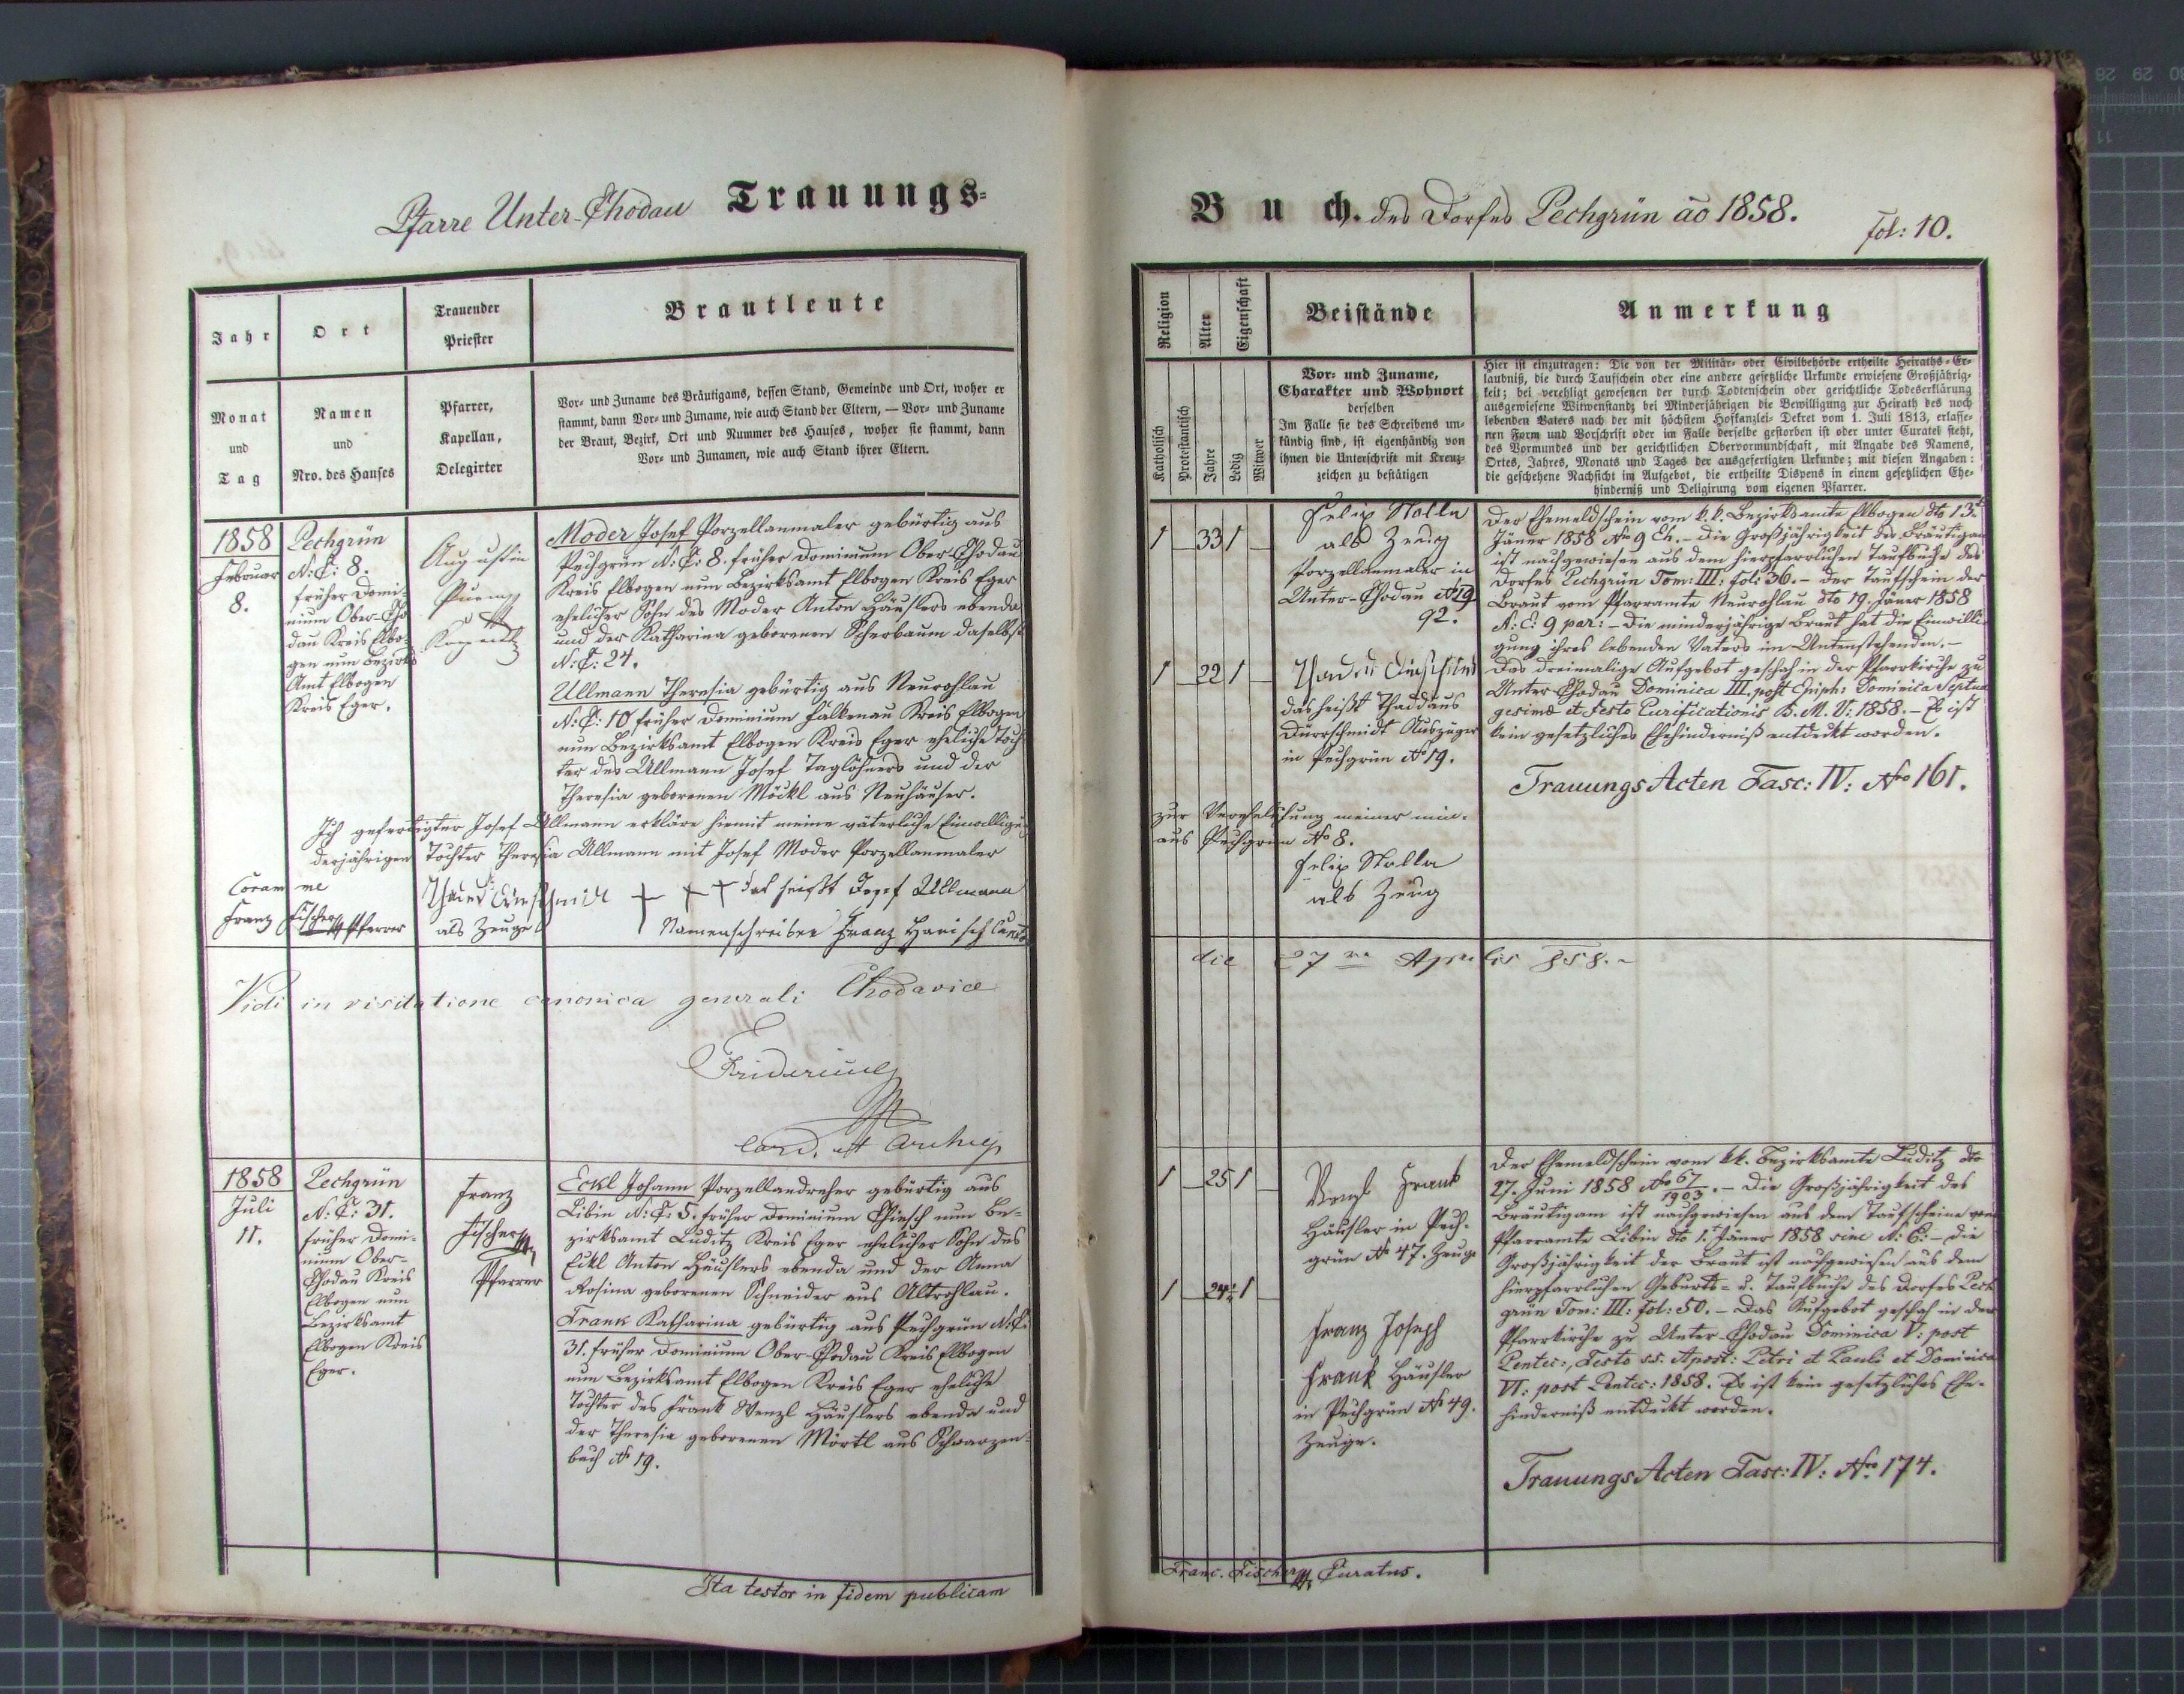 Pfarre Unter-Chodau Trauungs-
Jahr
Ort
Trauender
Priester
Brautleute
Monat
und
Tag
Namen
und
Nro. des Hauses
Pfarrer,
Kapellan,
Delegirter
Vor- und Zuname des Bräutigams, dessen Stand, Gemeinde und Ort, woher er
stammt, dann Vor- und Zuname, wie auch Stand der Eltern, — Vor- und Zuname
der Braut, Bezirk, Ort und Nummer des Hauses, woher sie stammt, dann
Vor- und Zunamen, wie auch Stand ihrer Eltern.
1858
Februar
8.
Pechgrün
N: C: 8.
früher Domi-
nium Ober-Cho
dau Kreis Elbo-
gen nun Bezirks
Amt Elbogen
Kreis Eger.
Augustin
Moder Josef Porzellanmaler gebürtig aus
Pechgrün N: C: 8. früher Dominium Ober-Chodau
Kreis Elbogen nun Bezirksamt Elbogen Kreis Eger
ehelicher Sohn des Moder Anton Häuslers ebenda
und der Katharina geborenen Scherbaum daselbst
N: C: 24.
Ullmann Theresia gebürtig aus Neurohlau
N: C: 10 früher Dominium Falkenau Kreis Elbogen
nun Bezirksamt Elbogen Kreis Eger eheliche Toch
ter des Ullmann Josef Taglöhners und der
Theresia geborenen Möckl aus Neuhäuser.
Ich gefertigter Josef Ullmann erkläre hiemit meine väterliche Einwilligung
derjährigen Tochter Theresia Ullmann mit Josef Moder Porzellanmaler
Coram me
Franz Fischer Pfarrer
als Zeuge
+ + + das heißt Josef Ullmann
Namenschreiber Franz Harisch
Vidi in visitatione canonica generali Chodaviae
Fridericus
Card. et Archiep
1858
Juli
11.
Pechgrün
N: C: 31.
früher Domi-
nium Ober-
Chodau Kreis
Elbogen nun
Bezirksamt
Elbogen Kreis
Eger.
Franz
Fischer
Pfarrer
Eckl Johann Porzellandreher gebürtig aus
Libin N: C: 5. früher Dominium Chiesch nun Be-
zirksamt Luditz Kreis Eger ehelicher Sohn des
Eckl Anton Häuslers ebenda und der Anna
Rosina geborenen Schneider aus Altrohlau.
Frank Katharina gebürtig aus Pechgrün N: C:
31. früher Dominium Ober-Chodau Kreis Elbogen
nun Bezirksamt Elbogen Kreis Eger eheliche
Tochter des Frank Wenzl Häuslers ebenda und
der Theresia geborenen Mörtl aus Schwarzen-
bach No 19.
Ita testor in fidem publicam
Buch. des Dorfes Pechgrün ao 1858.
fol: 10.
Religion
Alter
Eigenschaft
Beistände
Anmerkung
Katholisch
Protestantisch
Jahre
Ledig
Witwer
Vor- und Zuname,
Charakter und Wohnort
derselben
Im Falle sie des Schreibens un-
kündig sind, ist eigenhändig von
ihnen die Unterschrift mit Kreuz-
zeichen zu bestätigen
Hier ist einzutragen: Die von der Militär- oder Civilbehörde ertheilte Heiraths-Er-
laubniß, die durch Taufschein oder eine andere gesetzliche Urkunde erwiesene Großjährig-
keit; bei verehligt gewesenen der durch Todtenschein oder gerichtliche Todeserklärung
ausgewiesene Witwenstand; bei Minderjährigen die Bewilligung zur Heirath des noch
lebenden Vaters nach der mit höchstem Hofkanzlei-Dekret vom 1. Juli 1813, erlasse-
nen Form und Vorschrift oder im Falle derselbe gestorben ist oder unter Curatel steht,
des Vormundes und der gerichtlichen Obervormundschaft, mit Angabe des Namens,
Ortes, Jahres, Monats und Tages der ausgefertigten Urkunde; mit diesen Angaben:
die geschehene Nachsicht im Aufgebot, die ertheilte Dispens in einem gesetzlichen Ehe-
hinderniß und Deligirung vom eigenen Pfarrer.
1 33 1
Felix Stolla
als Zeug
Porzellanmaler in
Unter-Chodau
92.
1 22 1
das heißt Thaddäus
Dürrschmidt Auszügler
in Pechgrün No 19.
Der Ehemeldschein vom k. k. Bezirksamte Elbogen dto 13t
Jäner 1858 No 9 Ch. - Die Großjährigkeit des Bräutigam
ist nachgewiesen aus dem hierpfarrlichen Taufbuche des
Dorfes Pechgrün Tom: III: fol: 36. - Der Taufschein der
Braut vom Pfarramte Neurohlau dto 19. Jäner 1858
N: C: 9 par: - Die minderjährige Braut hat die Einwilli-
gung ihres lebenden Vaters im Untenstehenden. -
Das dreimalige Aufgebot geschah in der Pfarrkirche zu
Unter Chodau Dominica III. post Epiph: Dominica Septua
gesima et festo Purificationis B. M. V: 1858. - Es ist
kein gesetzliches Ehehinderniß entdeckt worden.
Trauungs Acten Fasc: IV: Nro 161.
zur Verehelichung meiner min-
aus Pechgrün No 8.
Felix Stolla
als Zeug
die 27 Aprilis 858. -
1 25 1
Wenzl Frank
Häusler in Pech-
grün No 47. Zeuge
1 24 1
Franz Joseph
Frank Häusler
in Pechgrün No 49.
Zeuge.
Der Ehemeldschein vom k k. Bezirksamte Luditz dto
27. Juni 1858 No 67/1903. - Die Großjährigkeit des
Bräutigam ist nachgewiesen aus dem Taufscheine vom
Pfarramte Libin dto 1. Jäner 1858 sine N: C: - Die
Großjährigkeit der Braut ist nachgewiesen aus dem
hierpfarrlichen Geburts- u. Taufbuche des Dorfes Pech
grün Tom: III: fol: 50. - Das Aufgebot geschah in der
Pfarrkirche zu Unter-Chodau Dominica V: post
Pentec:, Festo s.s. Apost: Petri et Pauli et Dominica
VI: post Pentec: 1858. Es ist kein gesetzliches Ehe-
hinderniß entdeckt worden.
Trauungs Acten Fasc: IV: Nro 174.
Franc. Fischer Curatus.